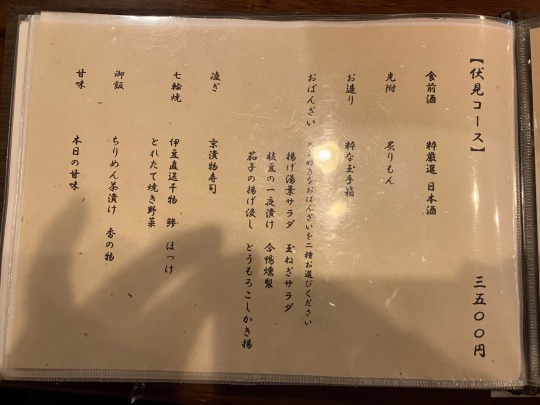 【伏見コース】 三五〇〇円
食前酒 粋厳選 日本酒
先附 炙りもん
お造り 粋な玉手箱
おばんざい お好きなおばんざいを二種お選びください
揚げ湯葉サラダ 玉ねぎサラダ
枝豆の一夜漬け 合鴨燻製
茄子の揚げ浸し とうもろこしかき揚
凌ぎ 京漬物寿司
七輪焼 伊豆直送干物 鯵 ほっけ
とれたて焼き野菜
御飯 ちりめん茶漬け 香の物
甘味 本日の甘味